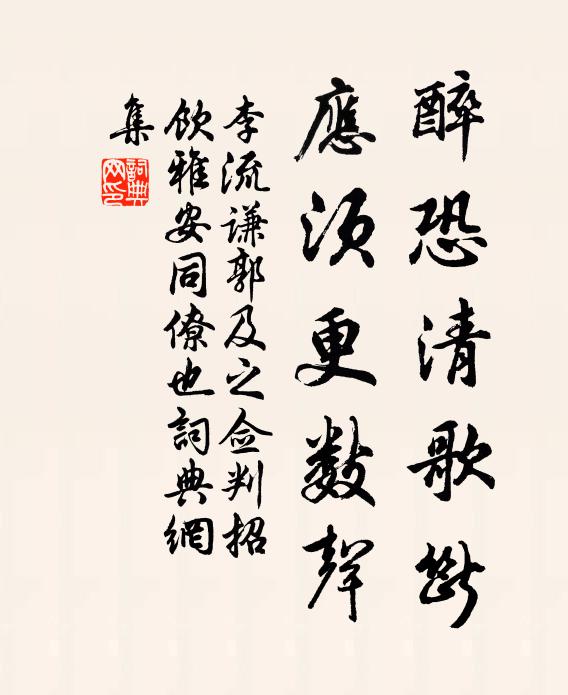 醉恐清歌斷
應須更數聲
李流謙郭及之僉判招
飲雅安同僚也詞典網
集
詞典網印